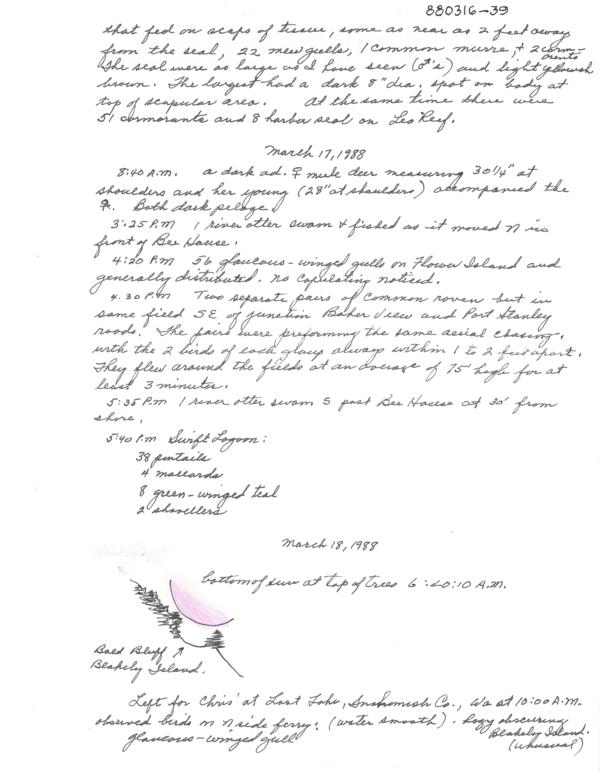 880316-39
that fed on scaps of tissue, some as near as 2 feet away
from the seal, 22 mew gulls, 1 common murre, + 2 corm-
orents
The seal were as large as I have seen (♂'s) and light yellowish
brown. The largest had a dark 8" dia. spot on body at
top of scapular area. At the same time there were
51 cormorants and 8 harbor seal on Leo Reef.
March 17, 1988
8:40 A.M. a dark ad. ♀ mule deer measuring 30 1/4" at
shoulders and her young (28" at shoulders) accompanied the
♀. Both dark pelage.
3:25 P.M 1 river otter swam & fished as it moved N in
front of Bee House.
4:20 P.M 56 glaucous-winged gulls on Flower Island and
generally distributed. no copulating noticed.
4:30 P.M Two separate pairs of Common raven but in
same field SE of junction Baker View and Port Stanley
roads. The pairs were preforming the same aerial chasing,
with the 2 birds of each group always within 1 to 2 feet apart.
They flew around the fields at an average of 75' high for at
least 3 minutes.
5:35 P.M 1 river otter swam S past Bee House at 30' from
shore.
5:40 P.M Swift Lagoon:
38 pintails
4 mallards
8 green-winged teal
2 shovellers
March 18, 1988
bottom of sun at top of trees 6:40:10 A.M.
Bald Bluff
Blakely Island.
Left for Chris' at Lost Lake, Snohomish Co., Wa at 10:00 A.M.
observed birds on N side ferry: (water smooth). Fogy obscuring
Blakely Island.
glaucous-winged gull
(unusual)